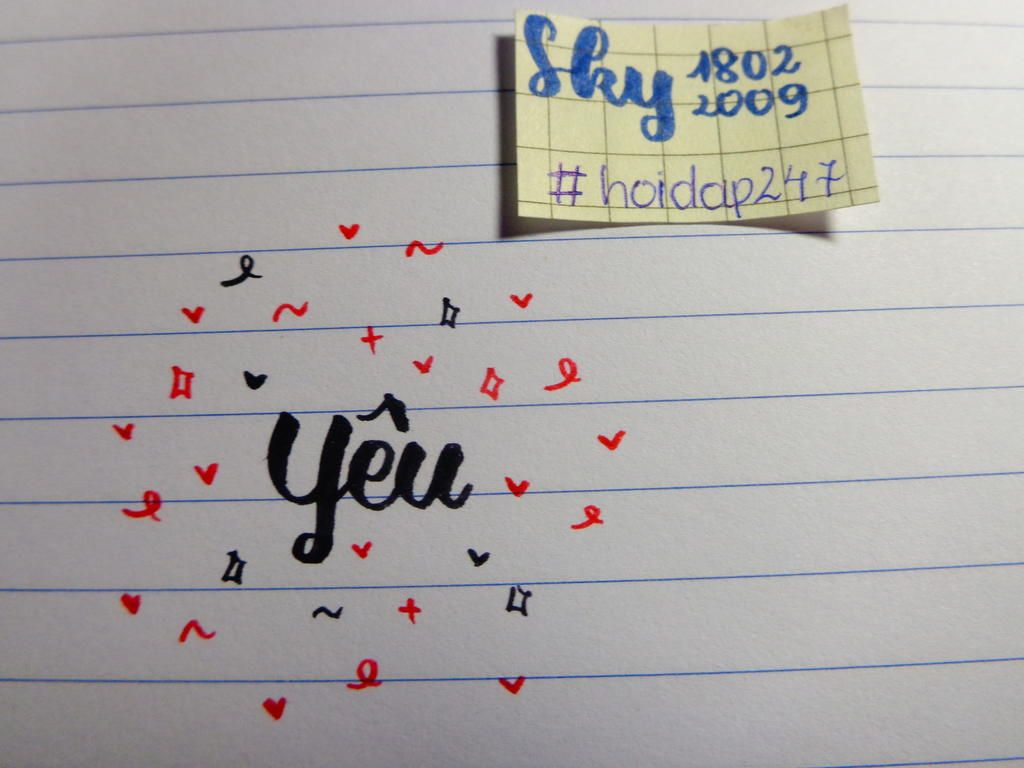 Sky 1802
2009
#hoidap247
yêu